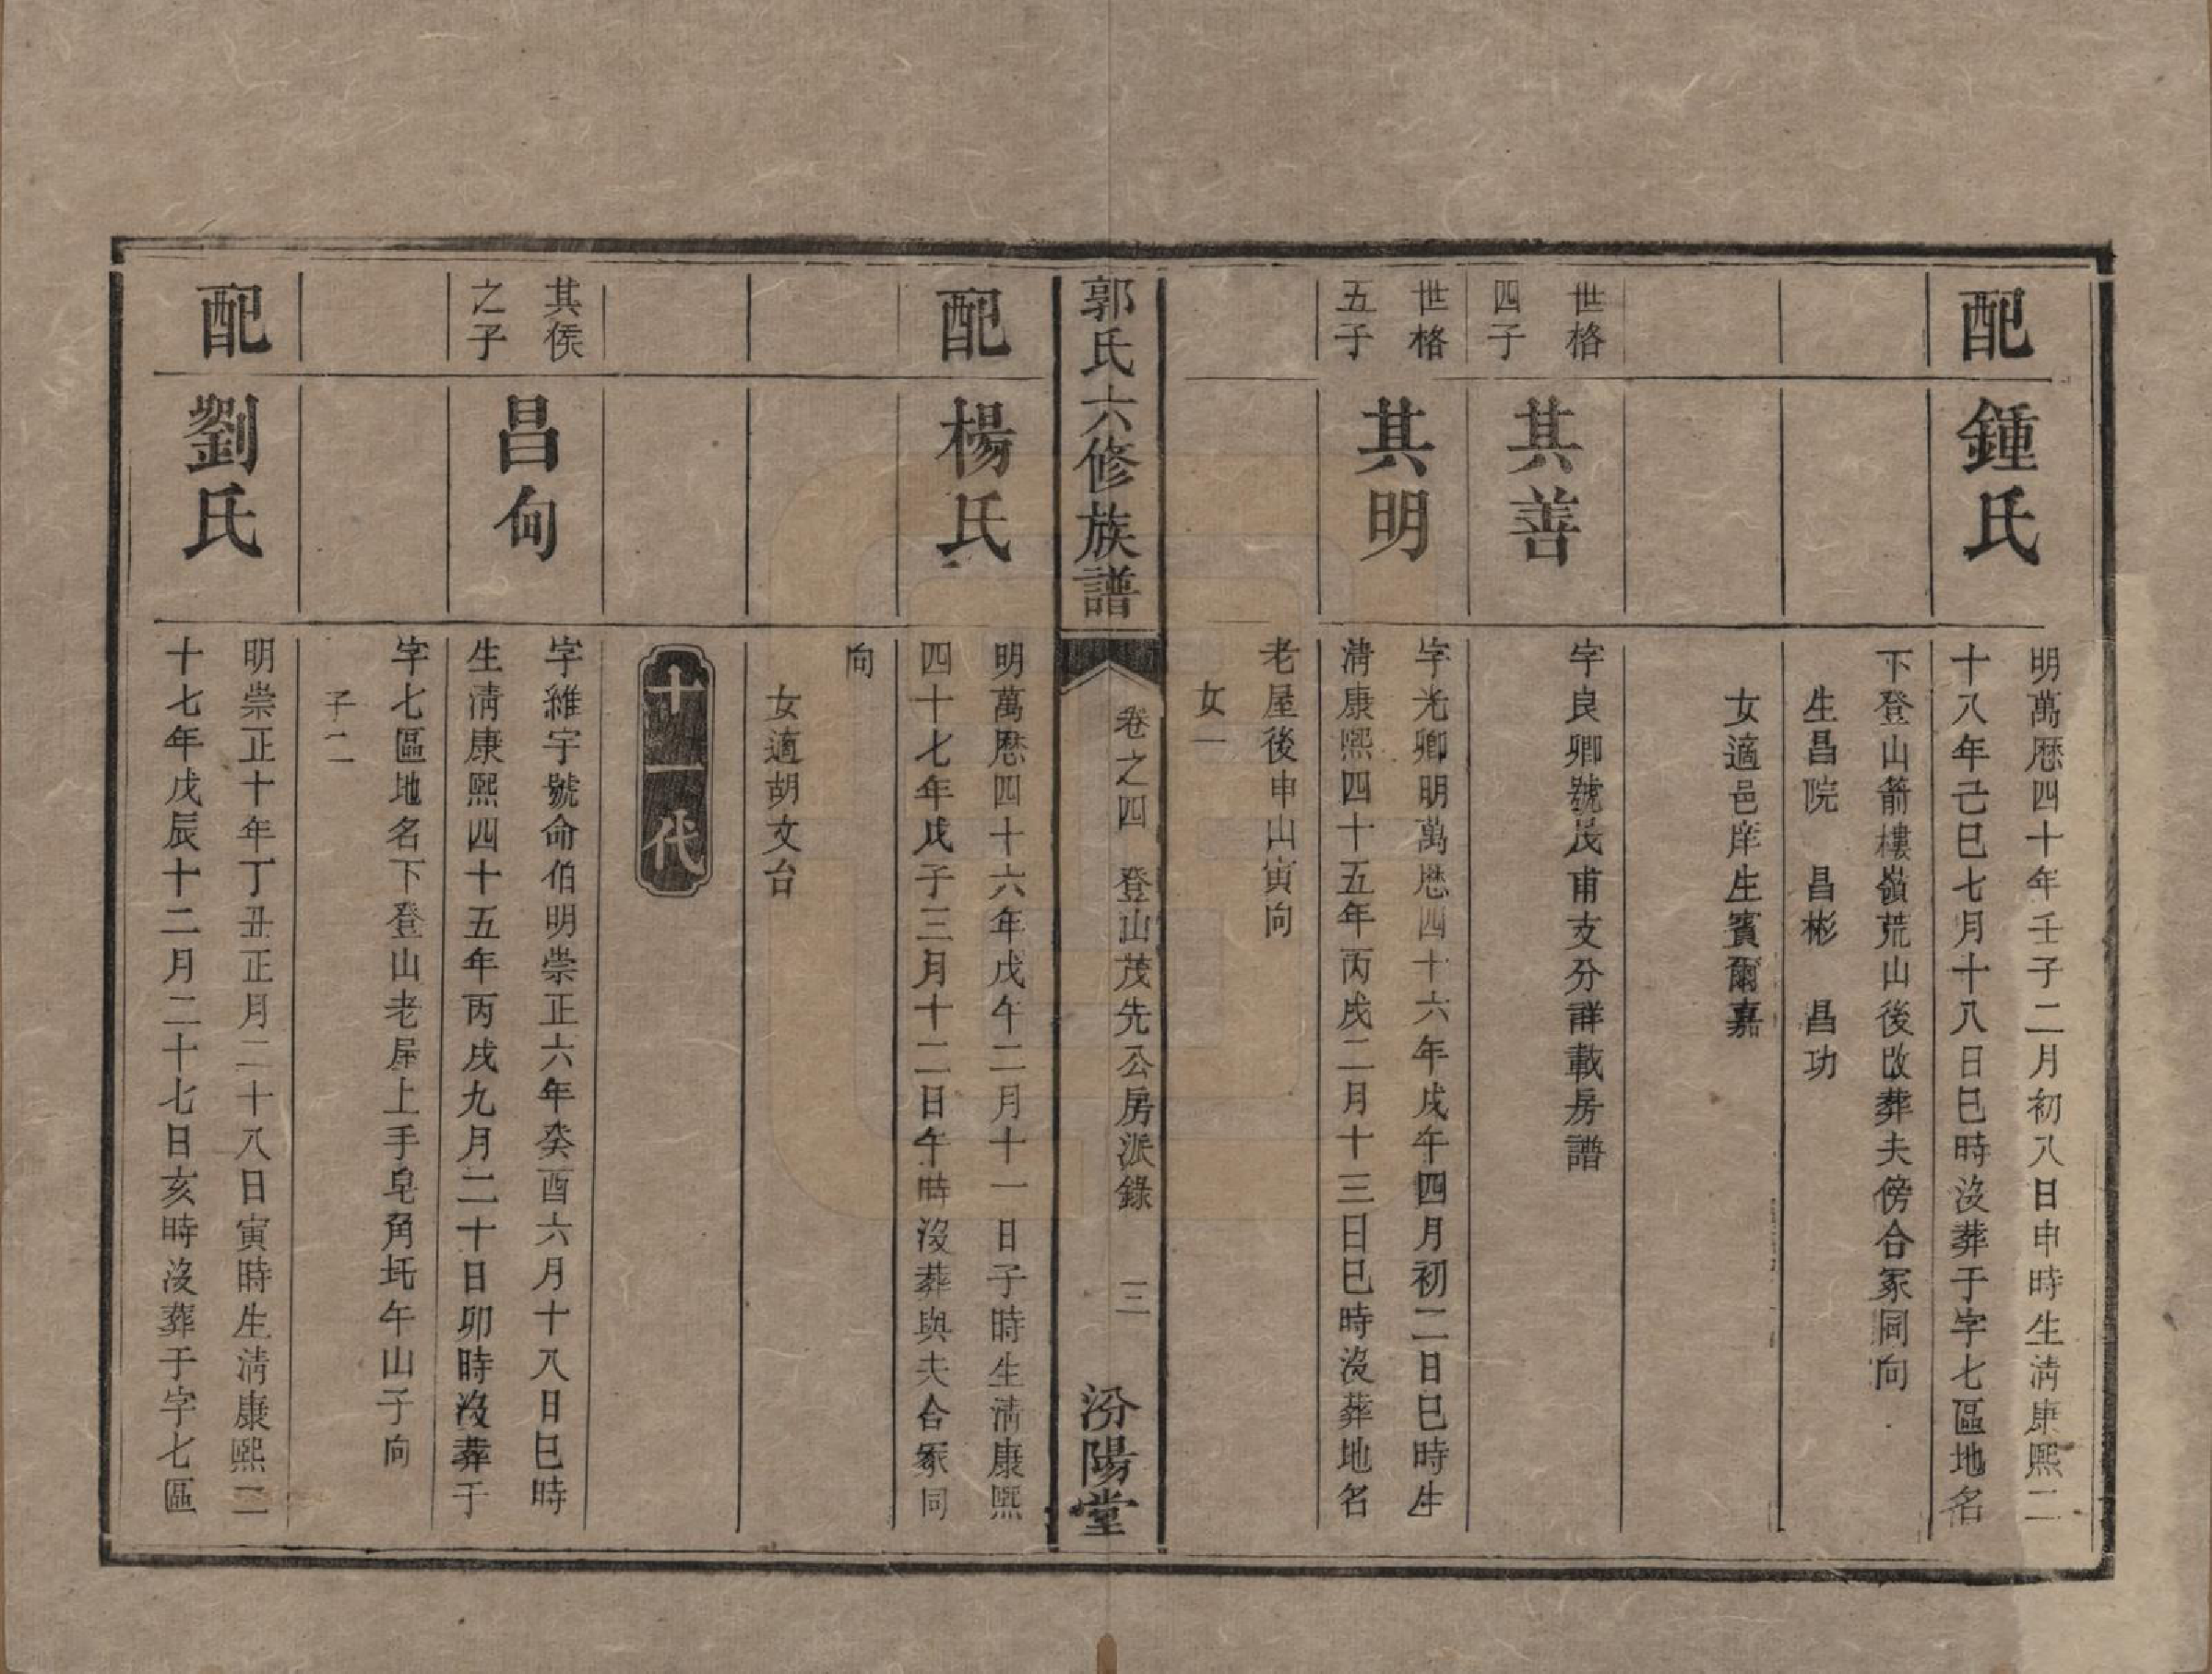 配
鍾氏
明萬厯四十年壬子二月初八日申時生淸康熙二
十八年己巳七月十八日巳時沒葬于字七區地名
下登山箭樓嶺荒山後改葬夫傍合冢同向
生昌院 昌彬 昌功
女適邑庠生賓爾嘉
世格
四子
其善
字良卿號民甫支分詳載房譜
世格
五子
其明
字光卿明萬厯四十六年戊午四月初二日巳時生
淸康熙四十五年丙戌二月十三日巳時沒葬地名
老屋後申山寅向
女一
郭氏六修族譜
卷之四 登山茂先公房派錄 三
汾陽堂
配
楊氏
明萬厯四十六年戊午二月十一日子時生淸康熙
四十七年戊子三月十二日午時沒葬與夫合冢同
向
女適胡文台
十一代
其侯
之子
昌甸
字維宇號命伯明崇正六年癸酉六月十八日巳時
生淸康熙四十五年丙戌九月二十日卯時沒葬于
字七區地名下登山老屋上手皂角圫午山子向
子二
配
劉氏
明崇正十年丁丑正月二十八日寅時生淸康熙二
十七年戊辰十二月二十七日亥時沒葬于字七區